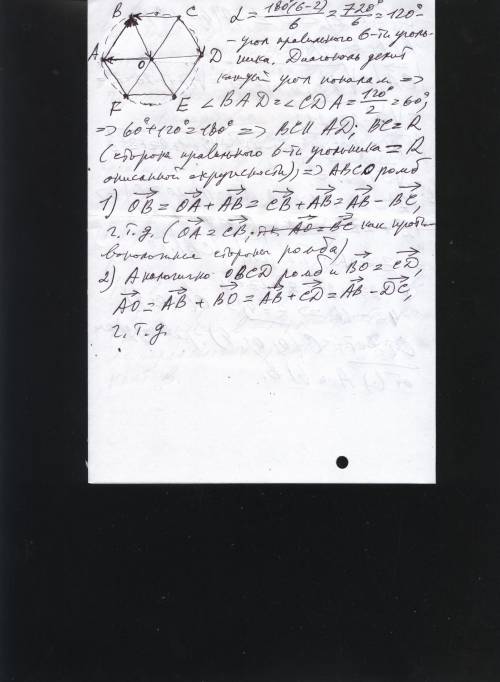 B C
A O D
F E
α = 180(6-2)/6 = 720°/6 = 120° -
- угол правильного 6-ти уголь-
ника. Диагональ делит
каждый угол пополам =>
∠BAD = ∠CDA = 120°/2 = 60°;
=> 60°+120°=180° => BC∥AD; BC=R
(сторона правильного 6-ти угольника = R
описанной окружности) => ABCO ромб
1) OB = OA + AB = CB + AB = AB - BC,
ч.т.д. (OA = CB, AO = BC как проти-
воположные стороны ромба)
2) Аналогично OBCD ромб и BO = CD,
AO = AB + BO = AB + CD = AB - DC,
ч.т.д.